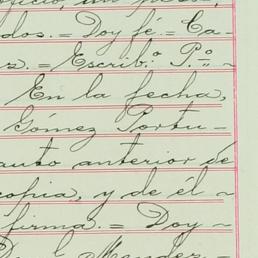 oficio, un peso,
dos. = Doy fé = Ca-
z. = Escrib.º P.º =
En la fecha,
Gómez Portu-
auto anterior de
copia, y de él ~
firma. = Doy-
Mendez-